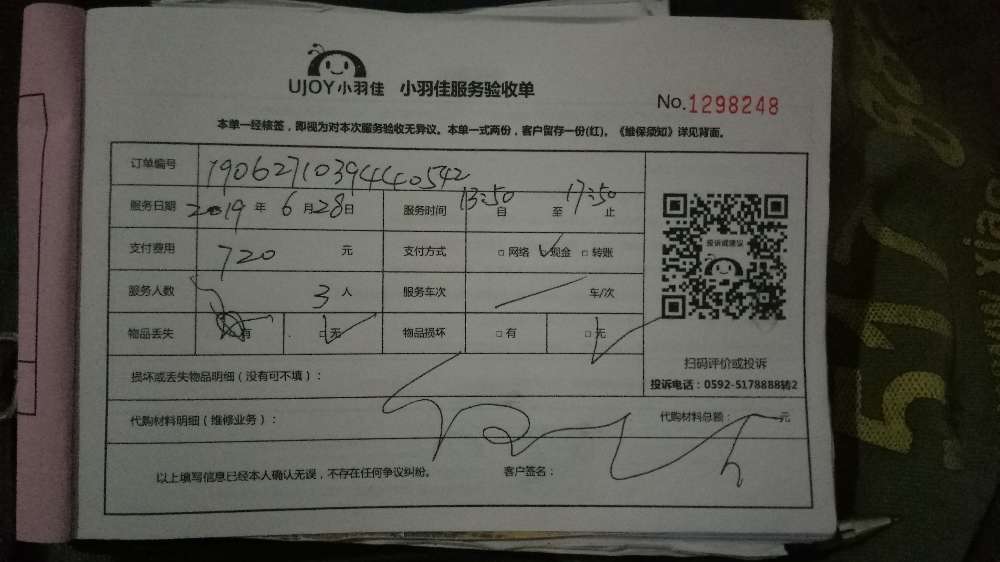 UJOY小羽佳 小羽佳服务验收单
No.1298248
本单一经核签，即视为对本次服务验收无异议。本单一式两份，客户留存一份(红)。《维保须知》详见背面。
订单编号 19062710394440542
服务日期 2019 年 6 月 28 日 服务时间 13:50 自 至 17:50 止
支付费用 720 元 支付方式 □网络 ✓现金 □转账
服务人数 3 人 服务车次 车/次
物品丢失 有 □无 物品损坏 □有 □无
投诉或建议
扫码评价或投诉
投诉电话：0592-5178888转2
损坏或丢失物品明细（没有可不填）：
代购材料明细（维修业务）： 代购材料总额： 元
以上填写信息已经本人确认无误，不存在任何争议纠纷。 客户签名：